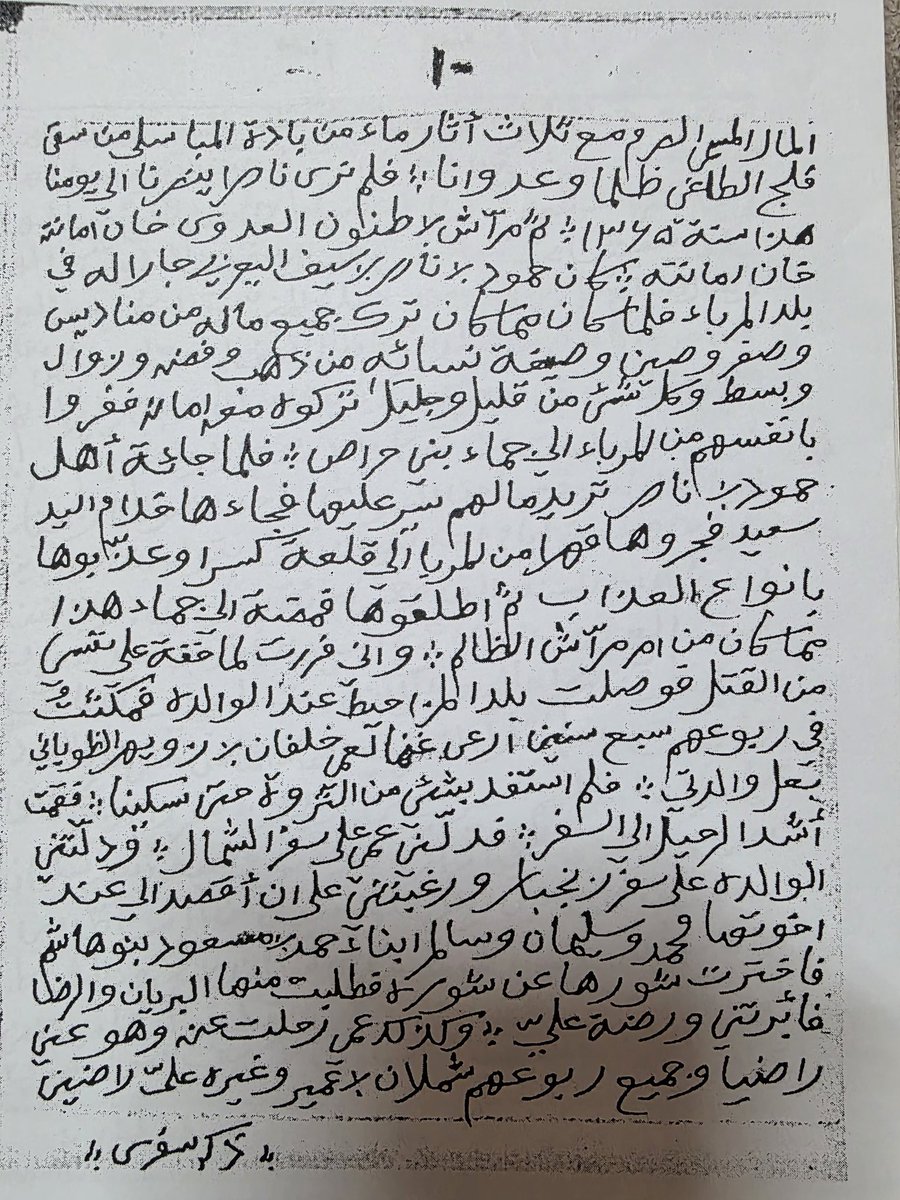 ١٠
المال مع ثلاث أثار ماء من بادة المباسلي من سقي
فلج الطاغي ظلما وعدوانا ؛ فلم نرى ناصرا ينصرنا الى يومنا
هذا سنة ١٣٦٥ ؛ ثم مرآش لا طنون العدوى خان امانة
خان امانته ؛ كان حمود بن ناصر بن سيف اليعربي جارا له في
بلد المرباء فلما كان مما كان ترك جميع ماله من مناديس
وصفر وصين وصيغة نسائه من ذهب وفضه وزوال
وبسط وكل شئ من قليل وجليل تركوه معه امانة ففروا
بانفسهم من المرباء الى حماء بني حراص ؛ فلما جائة أهل
حمود بن ناصر تريد مالهم عليها فجاءها خدام السيد
سعيد فجروها قهرا من المربا الى قلعة كسرا وعذبوها
بانواع العذاب ثم أطلقوها فمضة الى حماء هذا
مما كان من امر مرآش الظالم ؛ واني فررت لمافقة على نفسي
من القتل فوصلت بلد المزاحيط عند الوالده فمكثت
في ربوعهم سبع سنين ارعى غنما لعمي خلفان بن رويهي الطوياني
بعل والدتي ؛ فلم استفد بشئ من الثروة حتى سكينا ؛ فقمت
أشد الرحيل الى السفر ؛ فدلني عمي على سفر الشمال ؛ ودلتني
الوالده على سفر زنجبار ورغبتني على ان أقصد الى عند
اخوتها محمد وسليمان وسالم ابناء حمد بن مسعود بنوهاشم
فاخترت شورها عن شوره فطلبت منها البريان والرضا
فائرتني ورضة علي ؛ وكذلك عمي رحلت عنه وهو عني
راضيا وجميع ربوعهم شملان بن عمير وغيره علي راضين
؛ ذكر سفري ؛